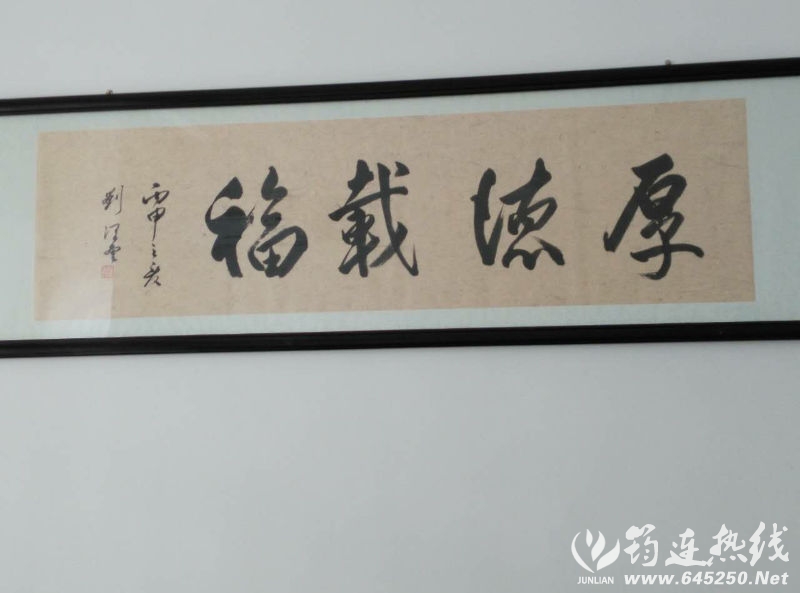 厚德載福
丙申之夏
劉
筠连热线
JUNLIAN www.645250.Net